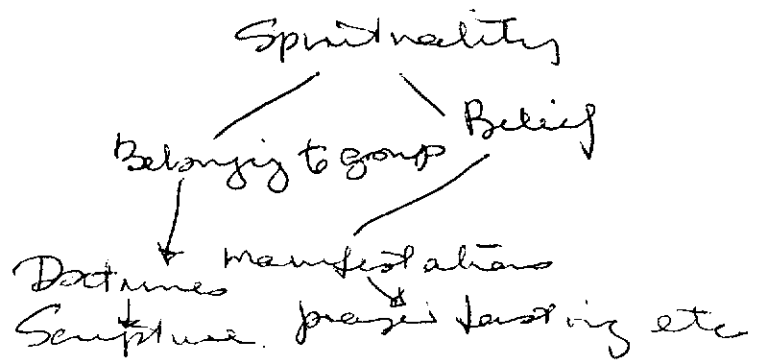 Spirituality
Belonging to group Belief
Doctrines manifestations
Scripture. prayer fasting etc